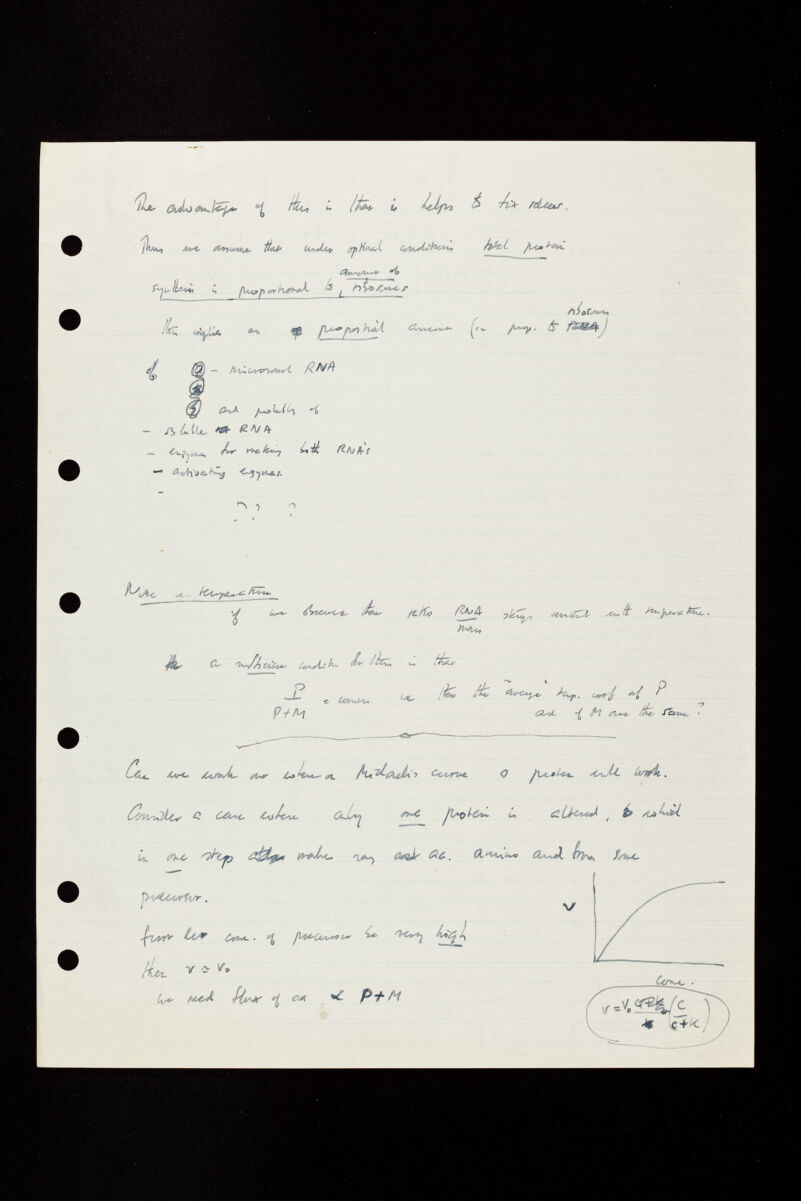 The advantage of this is that is helps to fix ideas.
Thus we assume that under optimal conditions total protein
amount of
synthesis is proportional to ribosomes
ribosomes
this implies an proportional amount (in prop. to RNA)
of ② - microsomal RNA
③ and probably of
- soluble RNA
- enzymes for making both RNA's
- activating enzymes.
-
?? ?
Note on temperature
if we observe that ratio RNA/mass stays constant with temperature.
a sufficient condition for this is that
P/P+M = constant ie that the "average" temp. coeff of P
and of M are the same?
Can we work out where on Michaelis curve a protein will work.
Consider a case where only one protein is altered, & which
in one step makes say aa. amino acid from some
precursor.
v
first let conc. of precursor be very high
then v ≃ v₀
conc.
we need flux of aa ∝ P+M
v = v₀ (c/c+K)